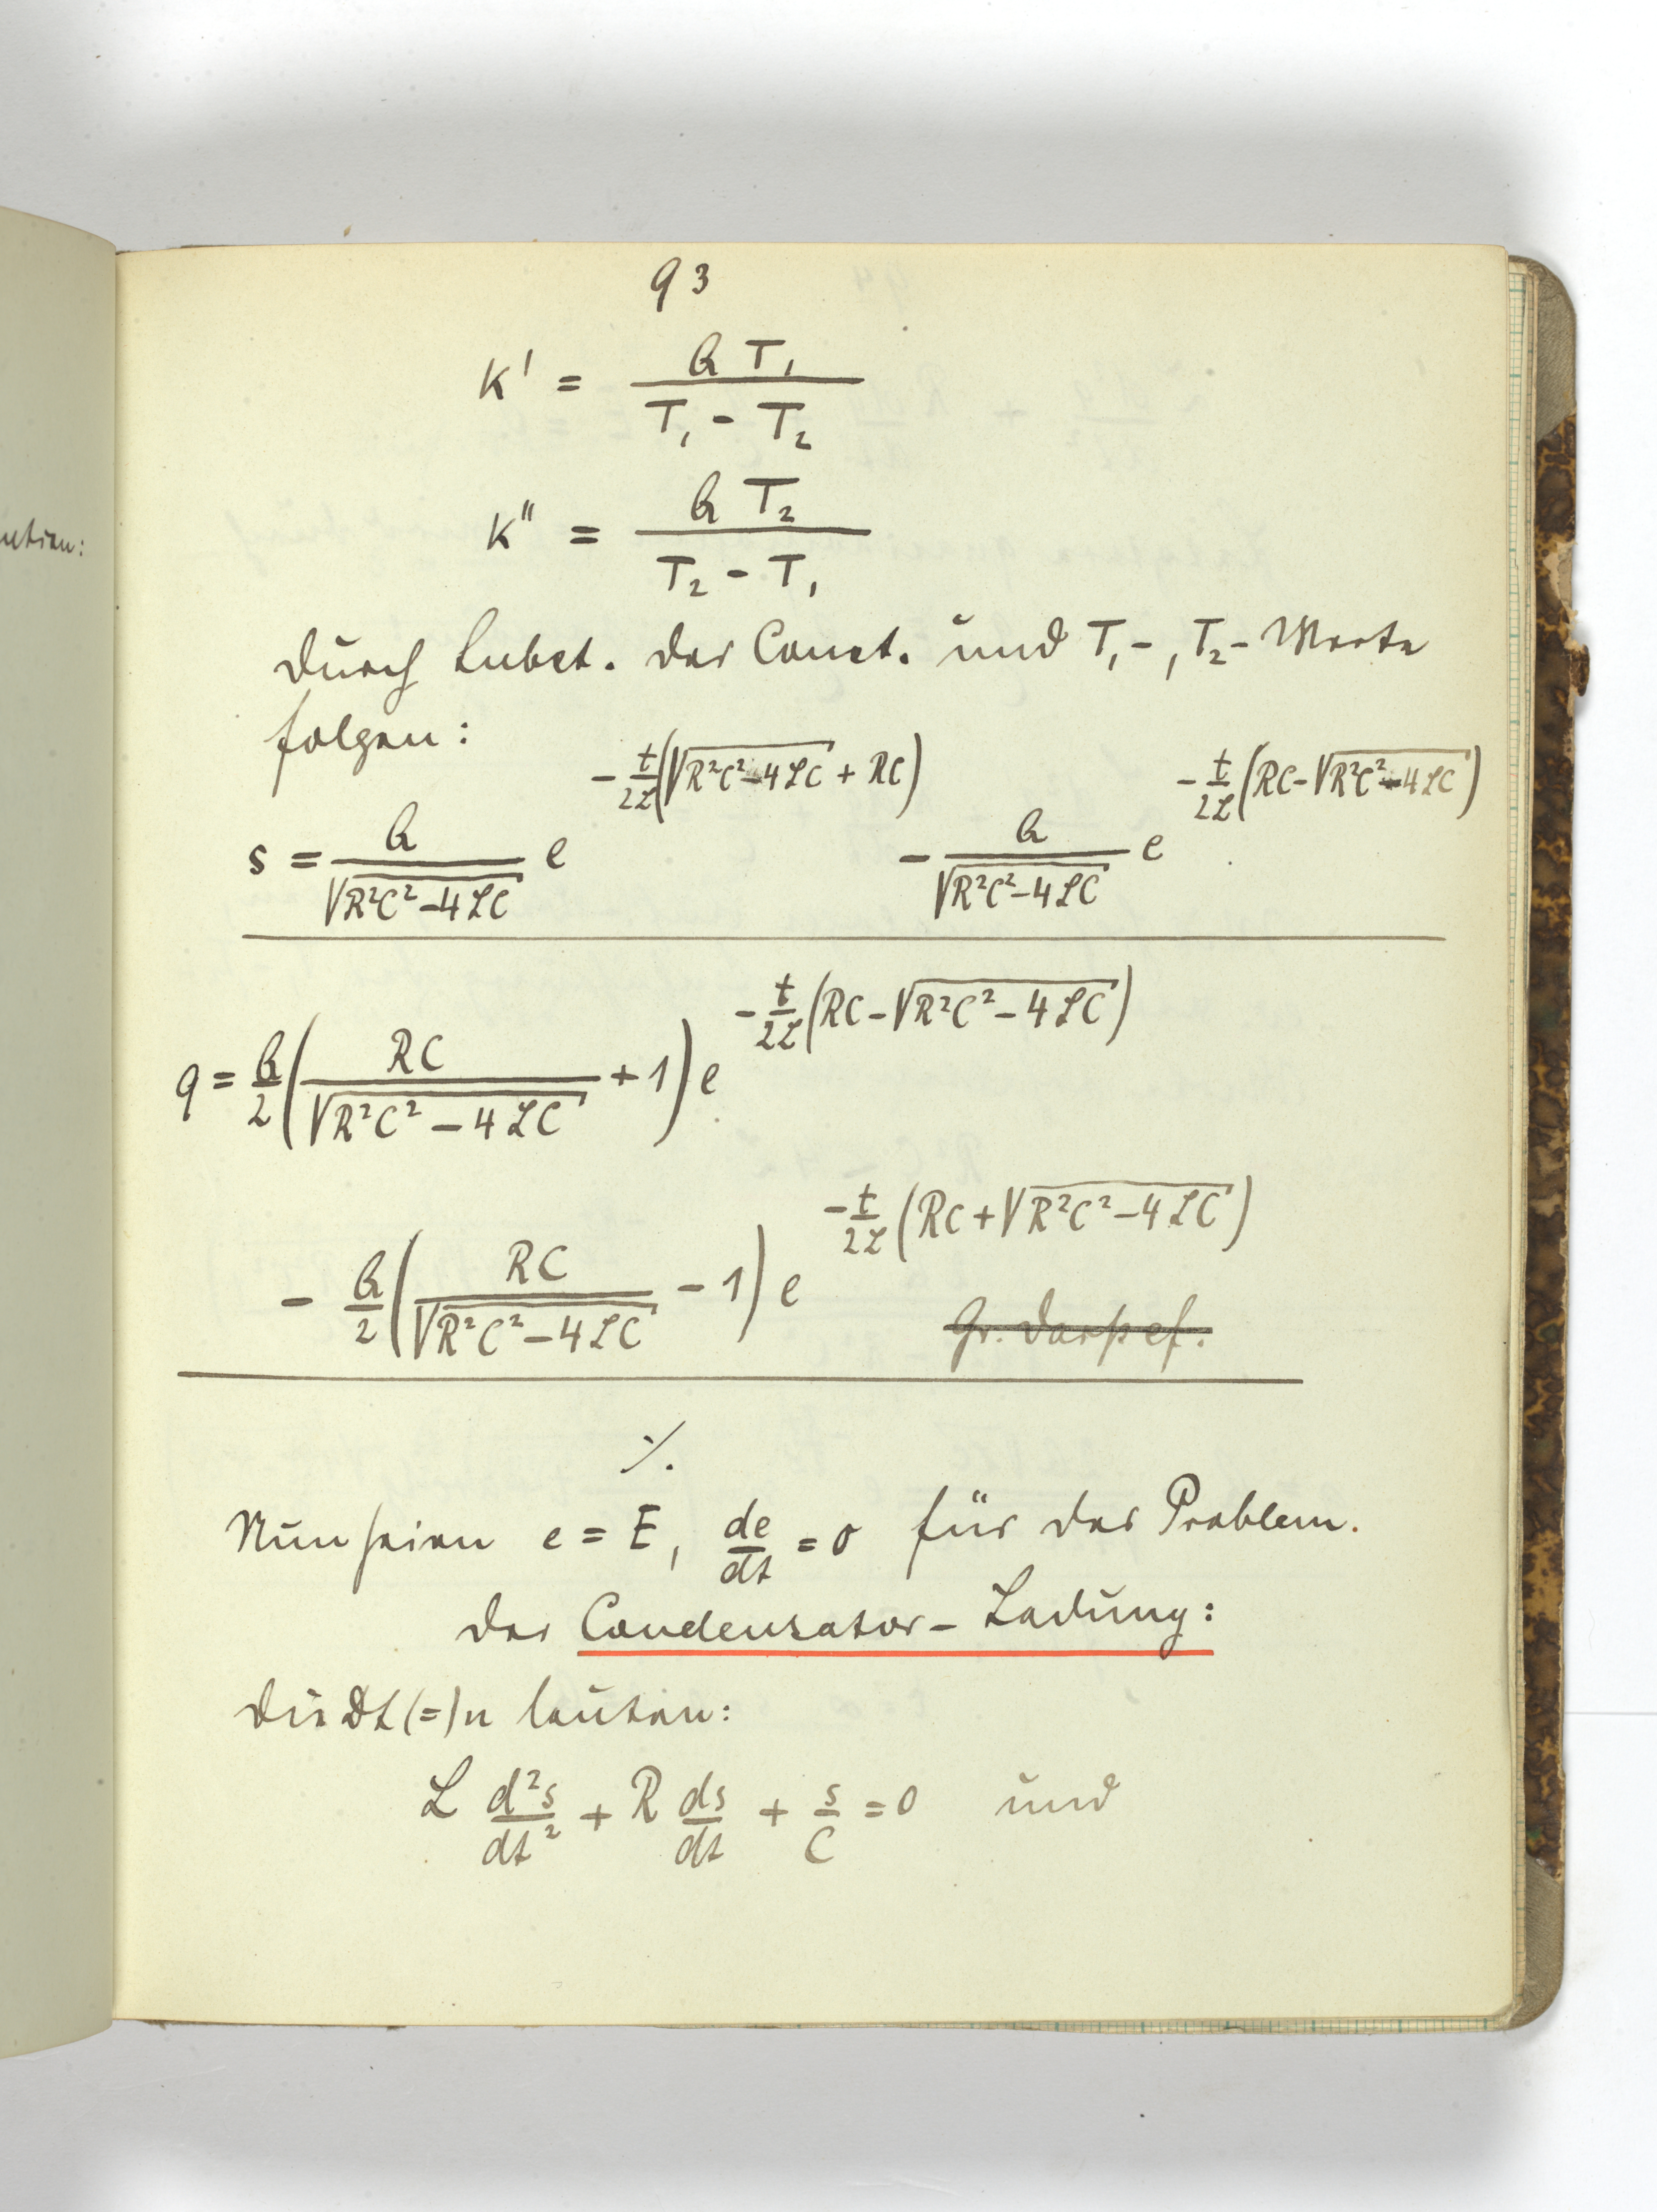 ution:
93
K' = Q T₁ / (T₁ - T₂)
K'' = Q T₂ / (T₂ - T₁)
Durch Subst. der Const. und T₁-, T₂- Werte
folgen:
s = Q/√(R²C² - 4LC) e^(-t/2L (√(R²C² - 4LC) + RC)) - Q/√(R²C² - 4LC) e^(-t/2L (RC - √(R²C² - 4LC)))
q = Q/2 (RC/√(R²C² - 4LC) + 1) e^(-t/2L (RC - √(R²C² - 4LC)))
- Q/2 (RC/√(R²C² - 4LC) - 1) e^(-t/2L (RC + √(R²C² - 4LC)))
⁒
Nun seien e = E, de/dt = 0 für das Problem.
der Condensator- Ladung:
Die Dt(=)n lauten:
L d²s/dt² + R ds/dt + s/C = 0 und